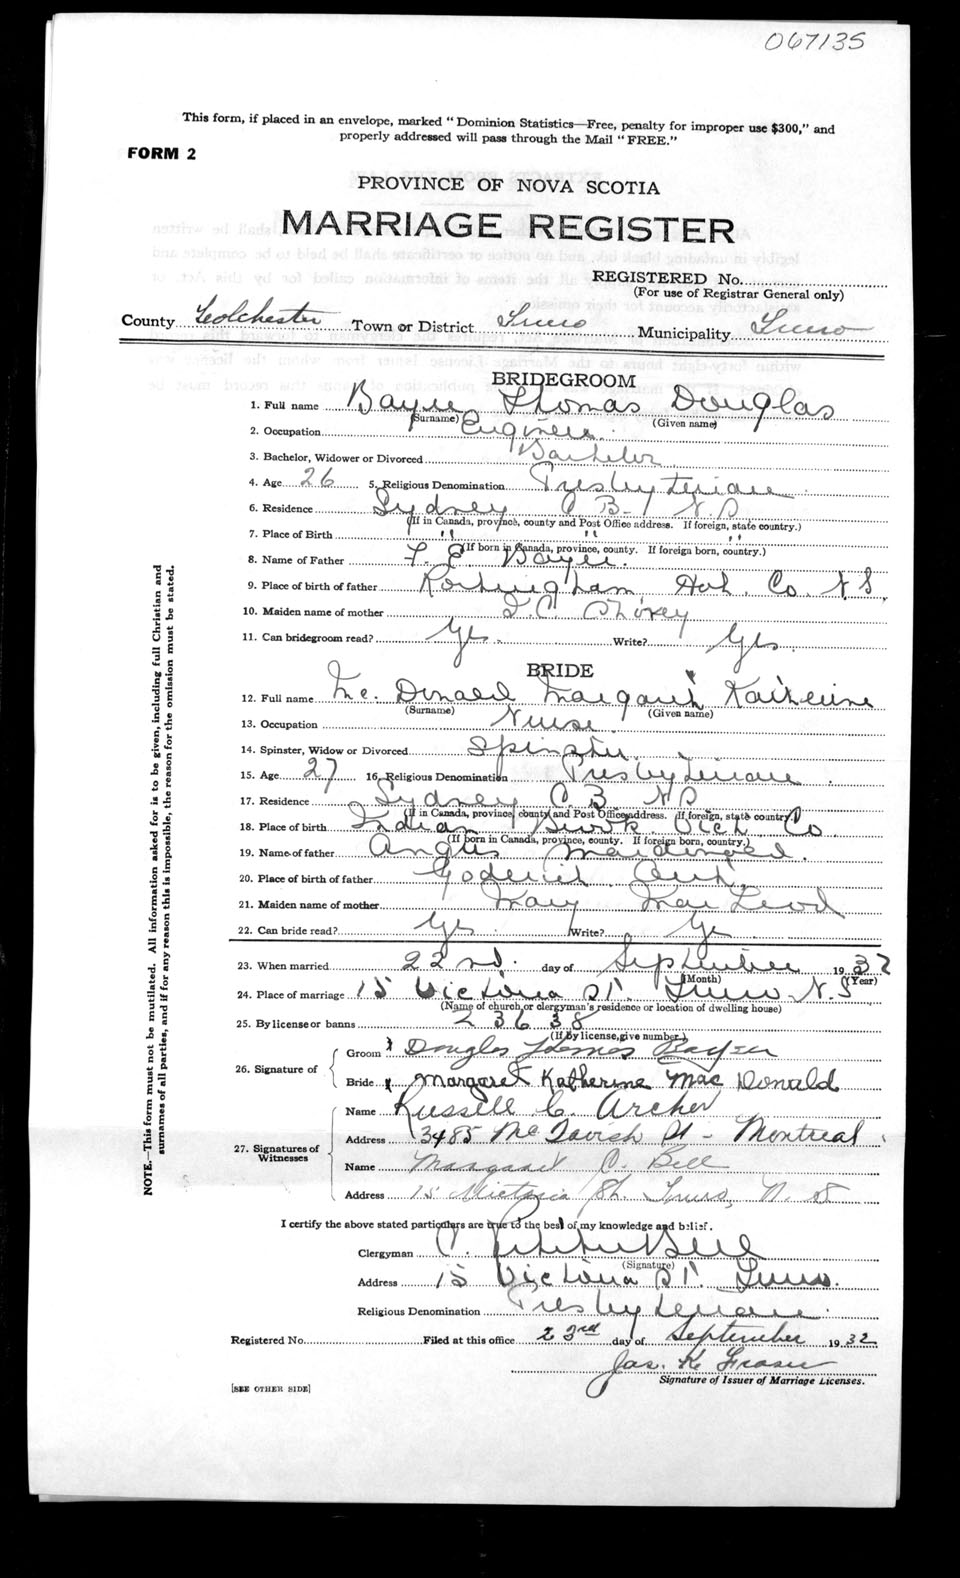 067135
This form, if placed in an envelope, marked "Dominion Statistics—Free, penalty for improper use $300," and
properly addressed will pass through the Mail "FREE."
FORM 2
PROVINCE OF NOVA SCOTIA
MARRIAGE REGISTER
REGISTERED No.
(For use of Registrar General only)
County Colchester Town or District Truro Municipality Truro
BRIDEGROOM
1. Full name Bayer Thomas Douglas
(Surname) (Given name)
2. Occupation Engineer.
3. Bachelor, Widower or Divorced Bachelor
4. Age 26 5. Religious Denomination Presbyterian
6. Residence Sydney C B- N.S
(If in Canada, province, county and Post Office address. If foreign, state country.)
7. Place of Birth " " "
(If born in Canada, province, county. If foreign born, country.)
8. Name of Father E. Bayer.
9. Place of birth of father Co. N.S.
10. Maiden name of mother
11. Can bridegroom read? Yes Write? Yes.
BRIDE
12. Full name Mc. Donald Margaret Katherine
(Surname) (Given name)
13. Occupation Nurse
14. Spinster, Widow or Divorced Spinster.
15. Age 27 16. Religious Denomination Presbyterian
17. Residence Sydney C B NS
(If in Canada, province, county and Post Office address. If foreign, state country.)
18. Place of birth Indian Brook. Vict Co
(If born in Canada, province, county. If foreign born, country.)
19. Name of father Angus Macdonald.
20. Place of birth of father Goderich Ont.
21. Maiden name of mother Mary MacLeod
22. Can bride read? Yes Write? Yes
23. When married 22nd. day of September 1932
(Month) (Year)
24. Place of marriage 15 Victoria St. Truro N.S
(Name of church or clergyman's residence or location of dwelling house)
25. By license or banns 23638
(If by license, give number)
26. Signature of
Groom x Douglas Thomas Bayer
Bride x Margaret Katherine MacDonald
27. Signatures of Witnesses
Name Russell C. Archer
Address 3485 McTavish St - Montreal
Name Margaret C. Bell
Address 15 Victoria St. Truro, N. S
I certify the above stated particulars are true to the best of my knowledge and belief.
Clergyman Bell
(Signature)
Address 15 Victoria St. Truro.
Religious Denomination Presbyterian.
Registered No. Filed at this office 23rd day of September 1932
Jas. K. Fraser
Signature of Issuer of Marriage Licenses.
[SEE OTHER SIDE]
NOTE.—This form must not be mutilated. All information asked for is to be given, including full Christian and
surnames of all parties, and if for any reason this is impossible, the reason for the omission must be stated.